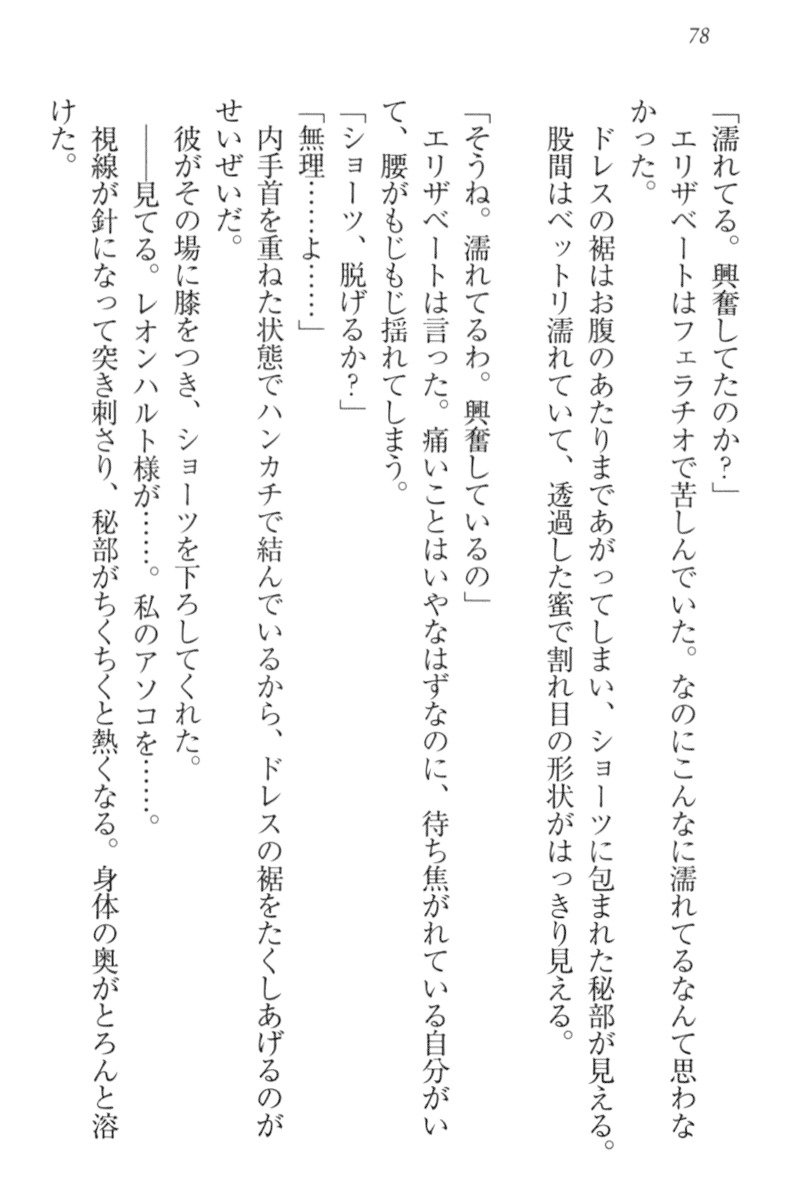 78
「濡れてる。興奮してたのか？」
エリザベートはフェラチオで苦しんでいた。なのにこんなに濡れてるなんて思わな
かった。
ドレスの裾はお腹のあたりまであがってしまい、ショーツに包まれた秘部が見える。
股間はベットリ濡れていて、透過した蜜で割れ目の形状がはっきり見える。
「そうね。濡れてるわ。興奮しているの」
エリザベートは言った。痛いことはいやなはずなのに、待ち焦がれている自分がい
て、腰がもじもじ揺れてしまう。
「ショーツ、脱げるか？」
「無理……よ……」
内手首を重ねた状態でハンカチで結んでいるから、ドレスの裾をたくしあげるのが
せいぜいだ。
彼がその場に膝をつき、ショーツを下ろしてくれた。
――見てる。レオンハルト様が……。私のアソコを……。
視線が針になって突き刺さり、秘部がちくちくと熱くなる。身体の奥がとろんと溶
けた。